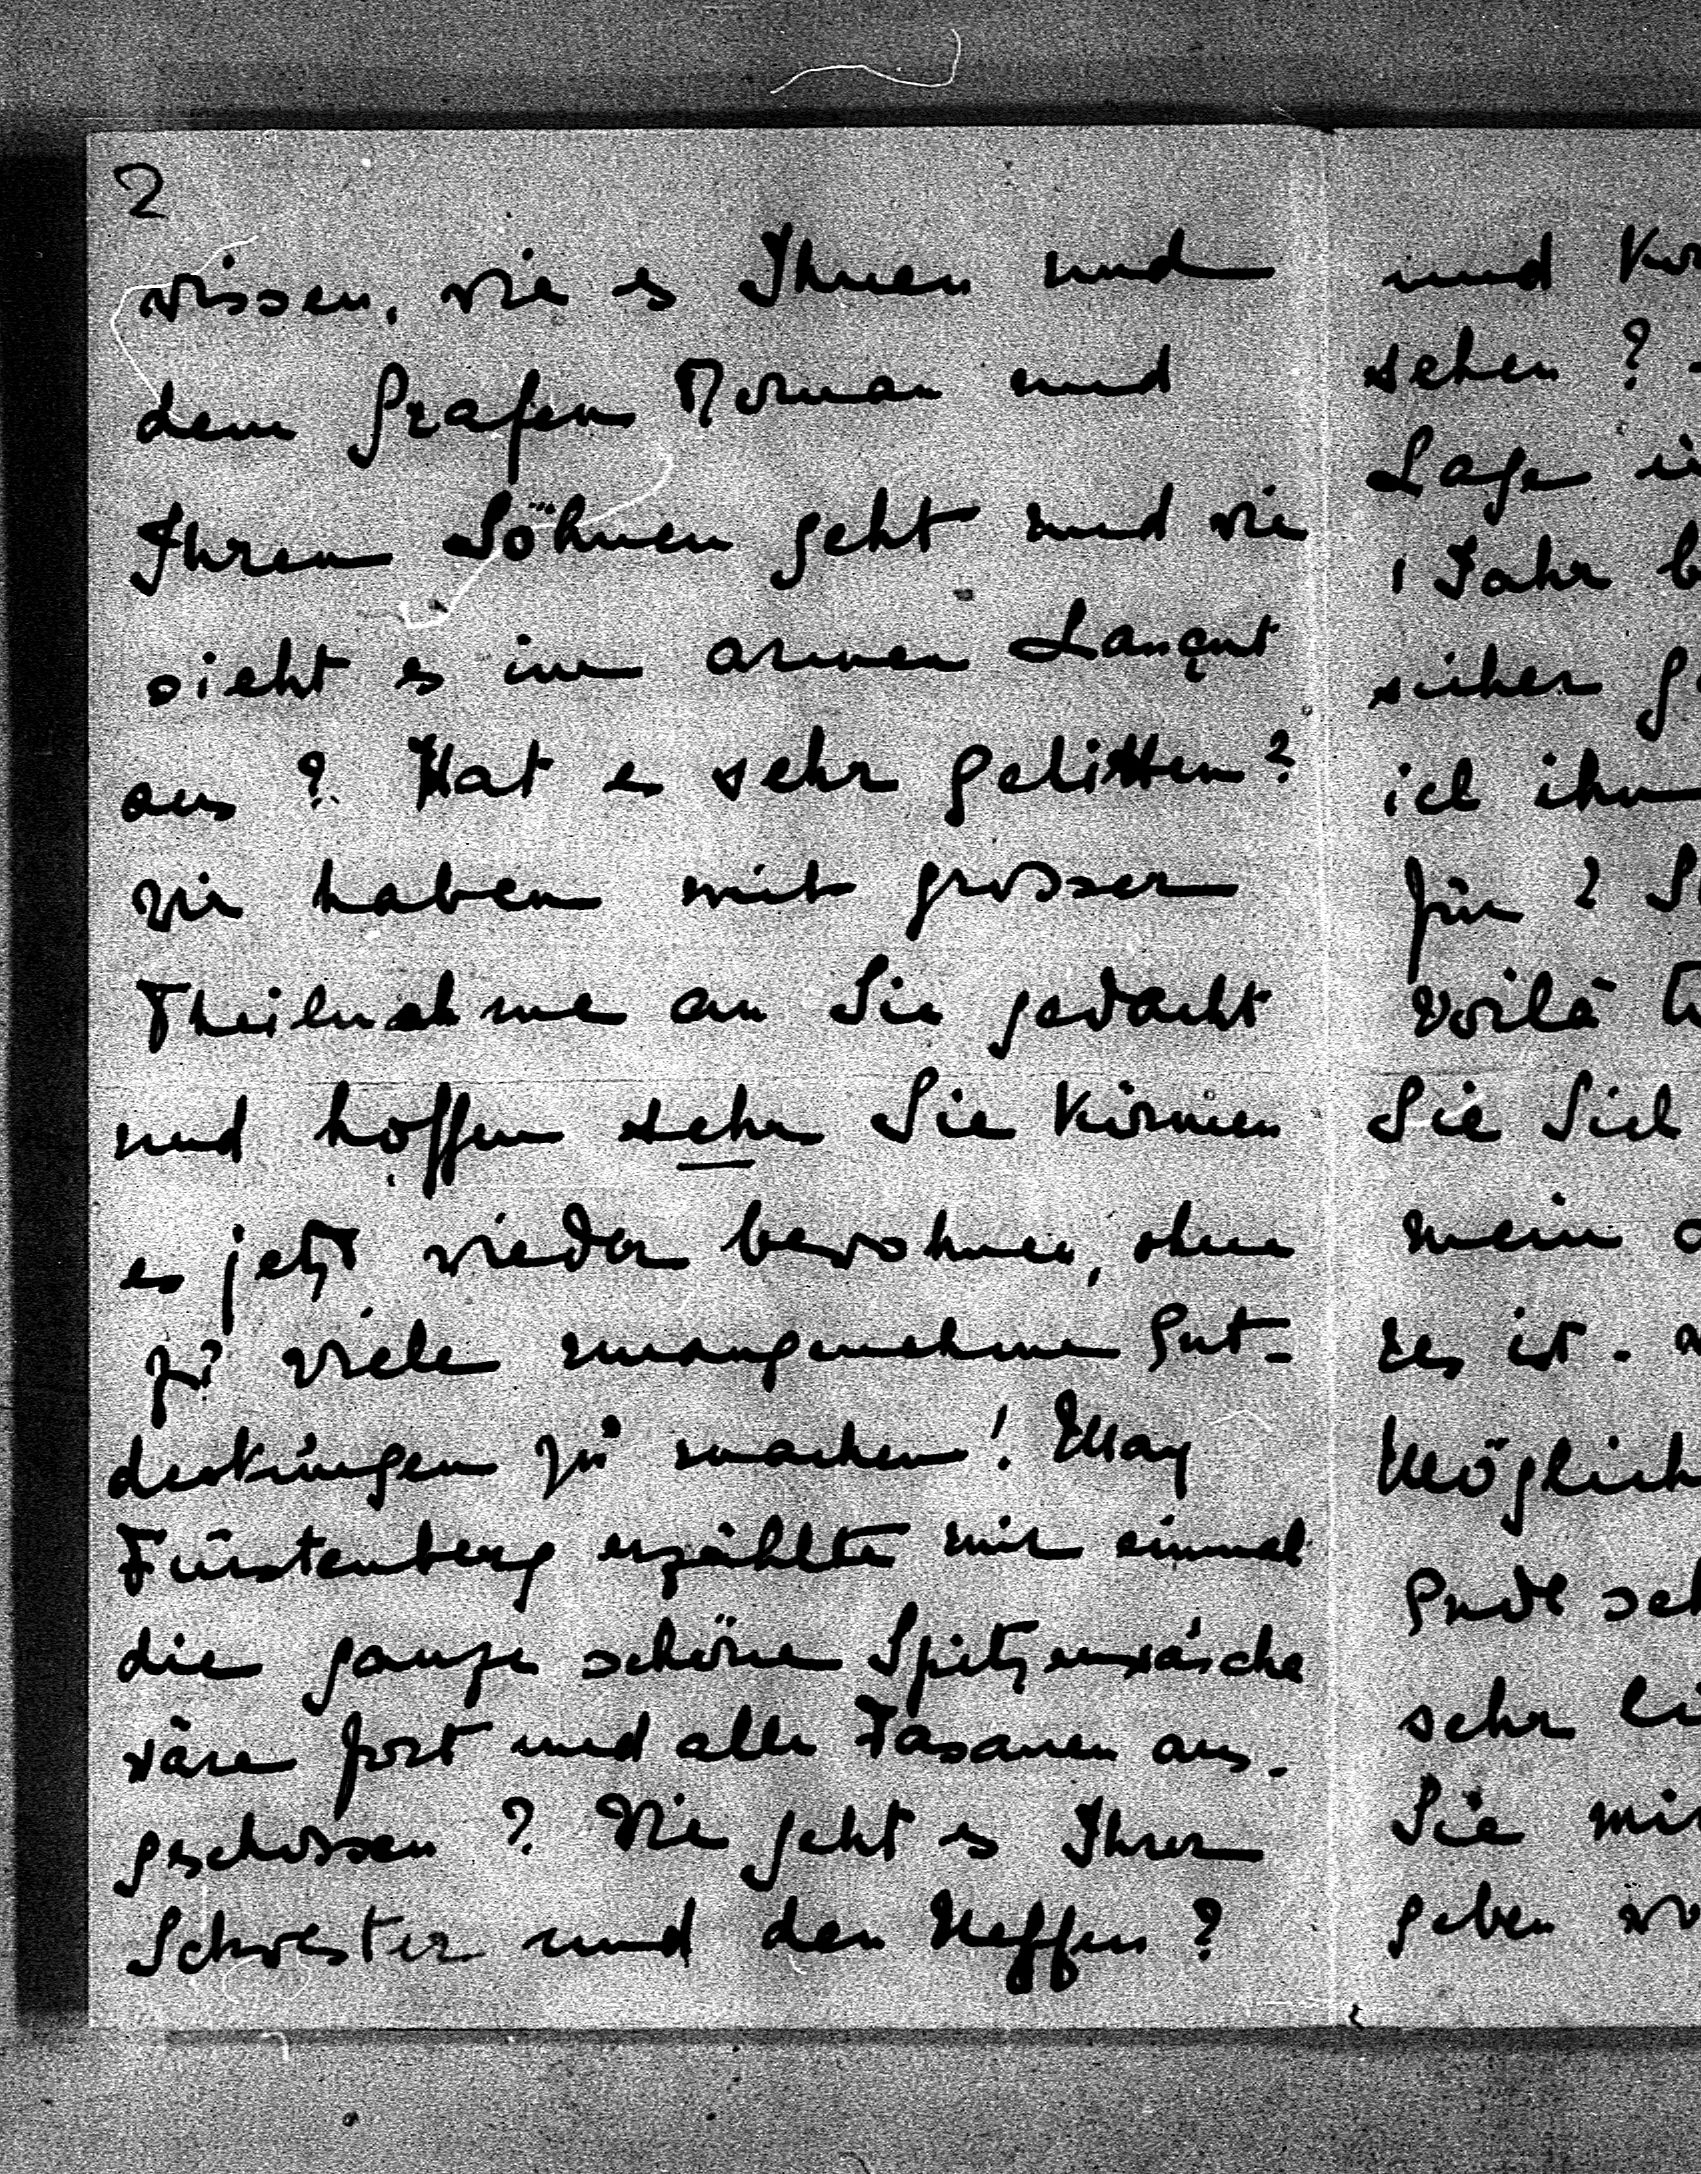 2
wissen, wie es Ihnen und
dem Grafen Roman und
Ihren Söhnen geht und wie
sieht es im armen Lançut
aus? Hat es sehr gelitten?
wir haben mit grosser
Theilnahme an Sie gedacht
und hoffen sehr Sie können
es jetzt wieder bewohnen, ohne
zu viele unangenehme Ent-
deckungen zu machen! May
Fürstenberg erzählte mir einmal
die ganze schöne Spitzenwäsche
wäre fort und alle Fasanen aus-
geschossen? Wie geht es Ihrer
Schwester und den Neffen?
und
sehen?
Lage
1 Jahr
sicher
ich ihm
für?
voilà
Sie Sich
mein
es ist.
Möglich
Ende
sehr
Sie
geben